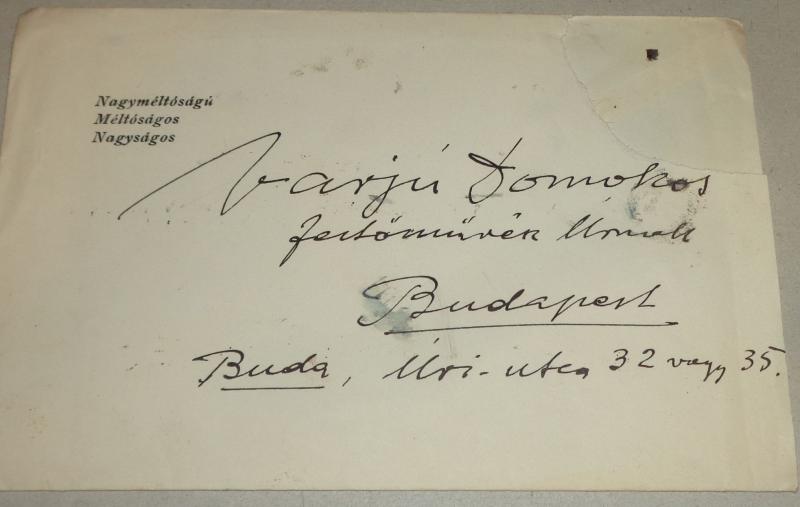 Nagyméltóságú
Méltóságos
Nagyságos
Varjú Domokos
festőművész Úrnak
Budapest
Buda, Úri-utca 32 vagy 35.